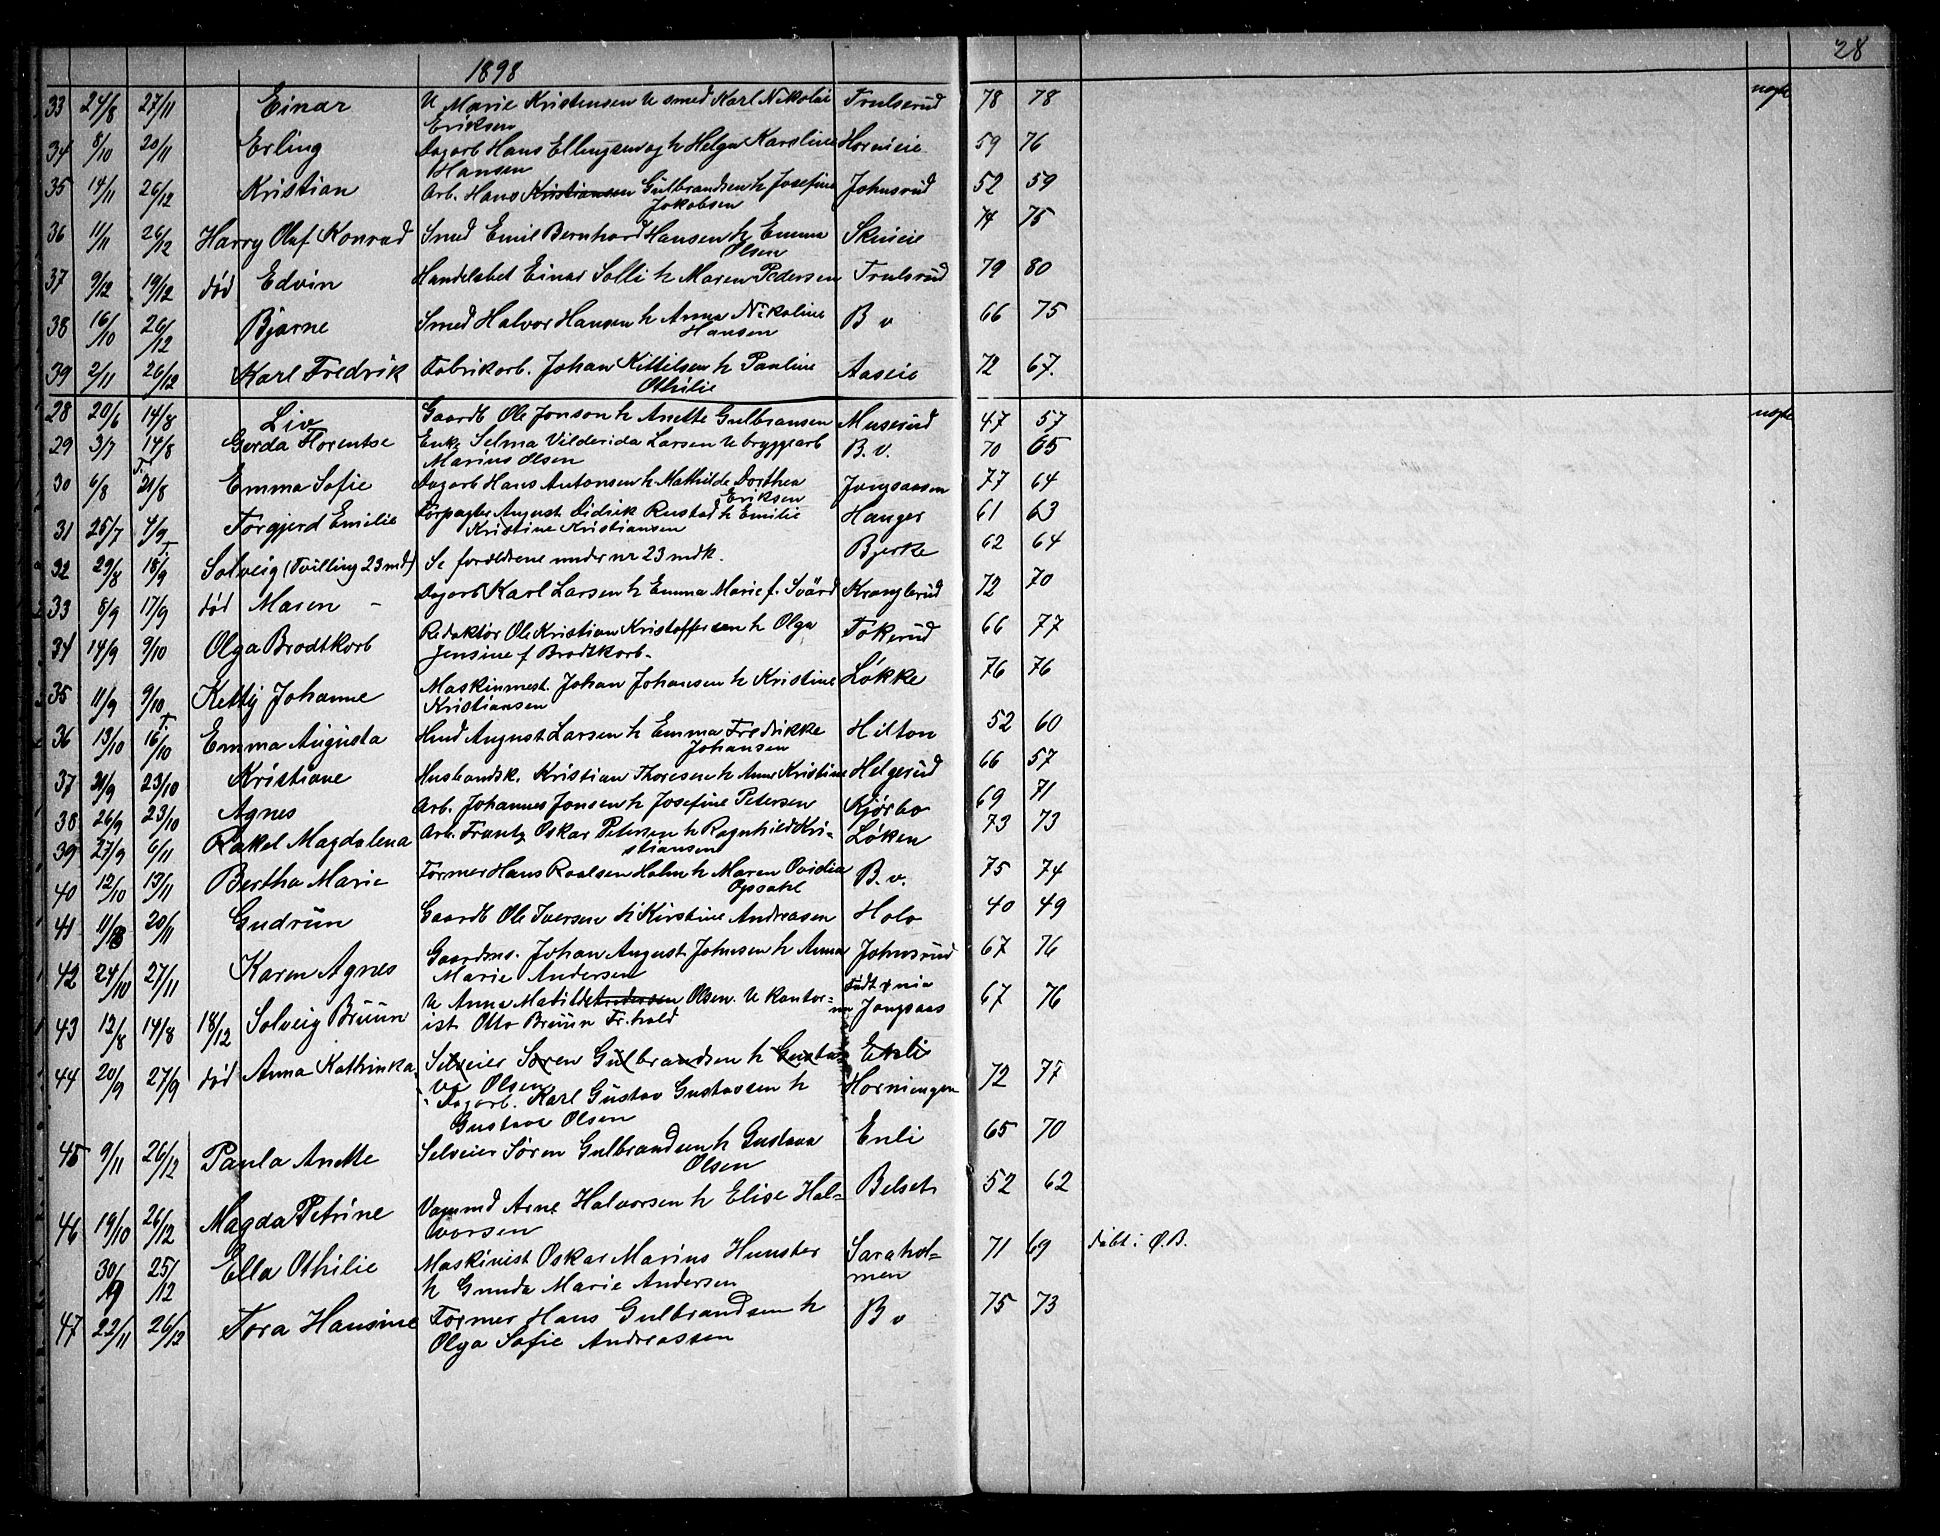 28
1898
33 24/8 27/11 Einar U Marie Kristensen U smed Karl Nikolai Trulserud 78 78 uegte
Eriksen
34 8/10 20/11 Erling Dagarb Hans Ellingsen og h Helga Karoline Hornieie 59 76
Hansen
35 14/11 26/12 Kristian Arb. Hans Kristiansen Gulbrandsen h Josefine Johnsrud 52 59
Jakobsen
36 11/11 26/12 Harry Olaf Konrad Smed Emil Bernhard Hansen h Emma Skuieie 74 75
Olsen
37 9/12 19/12 død Edvin Handelsbet Einar Solli h Maren Pedersen Trulsrud 79 80
38 16/10 26/12 Bjarne Smed Halvor Hansen h Anna Nikoline B v 66 75
Hansen
39 2/11 26/12 Karl Fredrik Fabrikarb. Johan Kittilsen h Pauline Aaseie 72 67.
Othilie
28 20/6 14/8 Liv Gaardb Ole Jonson h Anette Gulbransen Muserud 47 57 uegte
29 3/7 14/8 Gerda Florentse Enke Selma Vilderida Larsen U bryggearb B. v. 70 65
Marius Olsen
30 6/8 T. 21/8 Emma Sofie Dagarb Hans Antonsen h Mathilde Dorthea Jongsaasen 77 64
Eriksen
31 25/7 4/9 Torgjerd Emilie Forpagter August Didrik Rustad h Emilie Hauger 61 63
Kristine Kristiansen
32 29/8 T. 18/9 Solveig (Tvilling 23 mdk) Se forældrene under nr 23 mdk. Bjerke 62 64
33 8/9 17/9 død Maren - Dagarb Karl Larsen h Emma Marie f. Svärd Kranglerud 72 70
34 14/9 9/10 Olga Brodtkorb Redaktør Ole Kristian Kristoffersen h Olga Tokerud 66 77
Jensine f Brodtkorb.
35 11/9 9/10 Ketty Johanne Maskinmest. Johan Johansen h Kristine Løkke 76 76
Kristiansen
36 13/10 T. 16/10 Emma Augusta Hmd August Larsen h Emma Fredrikke Hilton 52 60
Johansen
37 21/9 23/10 Kristiane Husbandsk. Kristian Thoresen h Anne Kristine Helgerud 66 57
38 26/9 23/10 Agnes Arb. Johannes Jonsen h Josefine Petersen Kjørbo 69 71
39 27/9 6/11 Rakel Magdalena Arb. Frantz Oskar Petersen h Ragnhild Kri- Løken 73 73
stiansen
40 12/10 13/11 Bertha Marie Former Hans Roalsen Holm h Maren Ovidia B. v. 75 74
Opsahl
41 11/10 20/11 Gudrun Gaardb Ole Iversen h Kirstine Andreasen Holo 40 49
42 24/10 27/11 Karen Agnes Gaardms. Johan August Johnsen h Anna Johnsrud 67 76
Marie Andersen
43 12/8 14/8 18/12 Solveig Bruun U Anna Matilde Andersen Olsen. U kontor- Født Jongsaas 67 76
ist Otto Bruun Fr.hald
44 20/9 27/9 død Anna Kathinka Selveier Søren Gulbrandsen h Gusta- Enli
va Olsen
Dagarb. Karl Gustav Gustavsen h Horningen 72 77
Gustava Olsen
45 9/11 26/12 Paula Anette Selveier Søren Gulbrandsen h Gustava Enli 65 70
Olsen
46 19/10 26/12 Magda Petrine Vognmd Arne Halvorsen h Elise Hal- Belset 52 62
vorsen
30/9 25/12 Ella Othilie Maskinist Oskar Marius Hunster Sarahol- 71 69 døbt i Ø.B.
h Gunda Marie Andersen men
47 22/11 26/12 Tora Hansine Former Hans Gulbrandsen h B v 75 73
Olga Sofie Andreassen